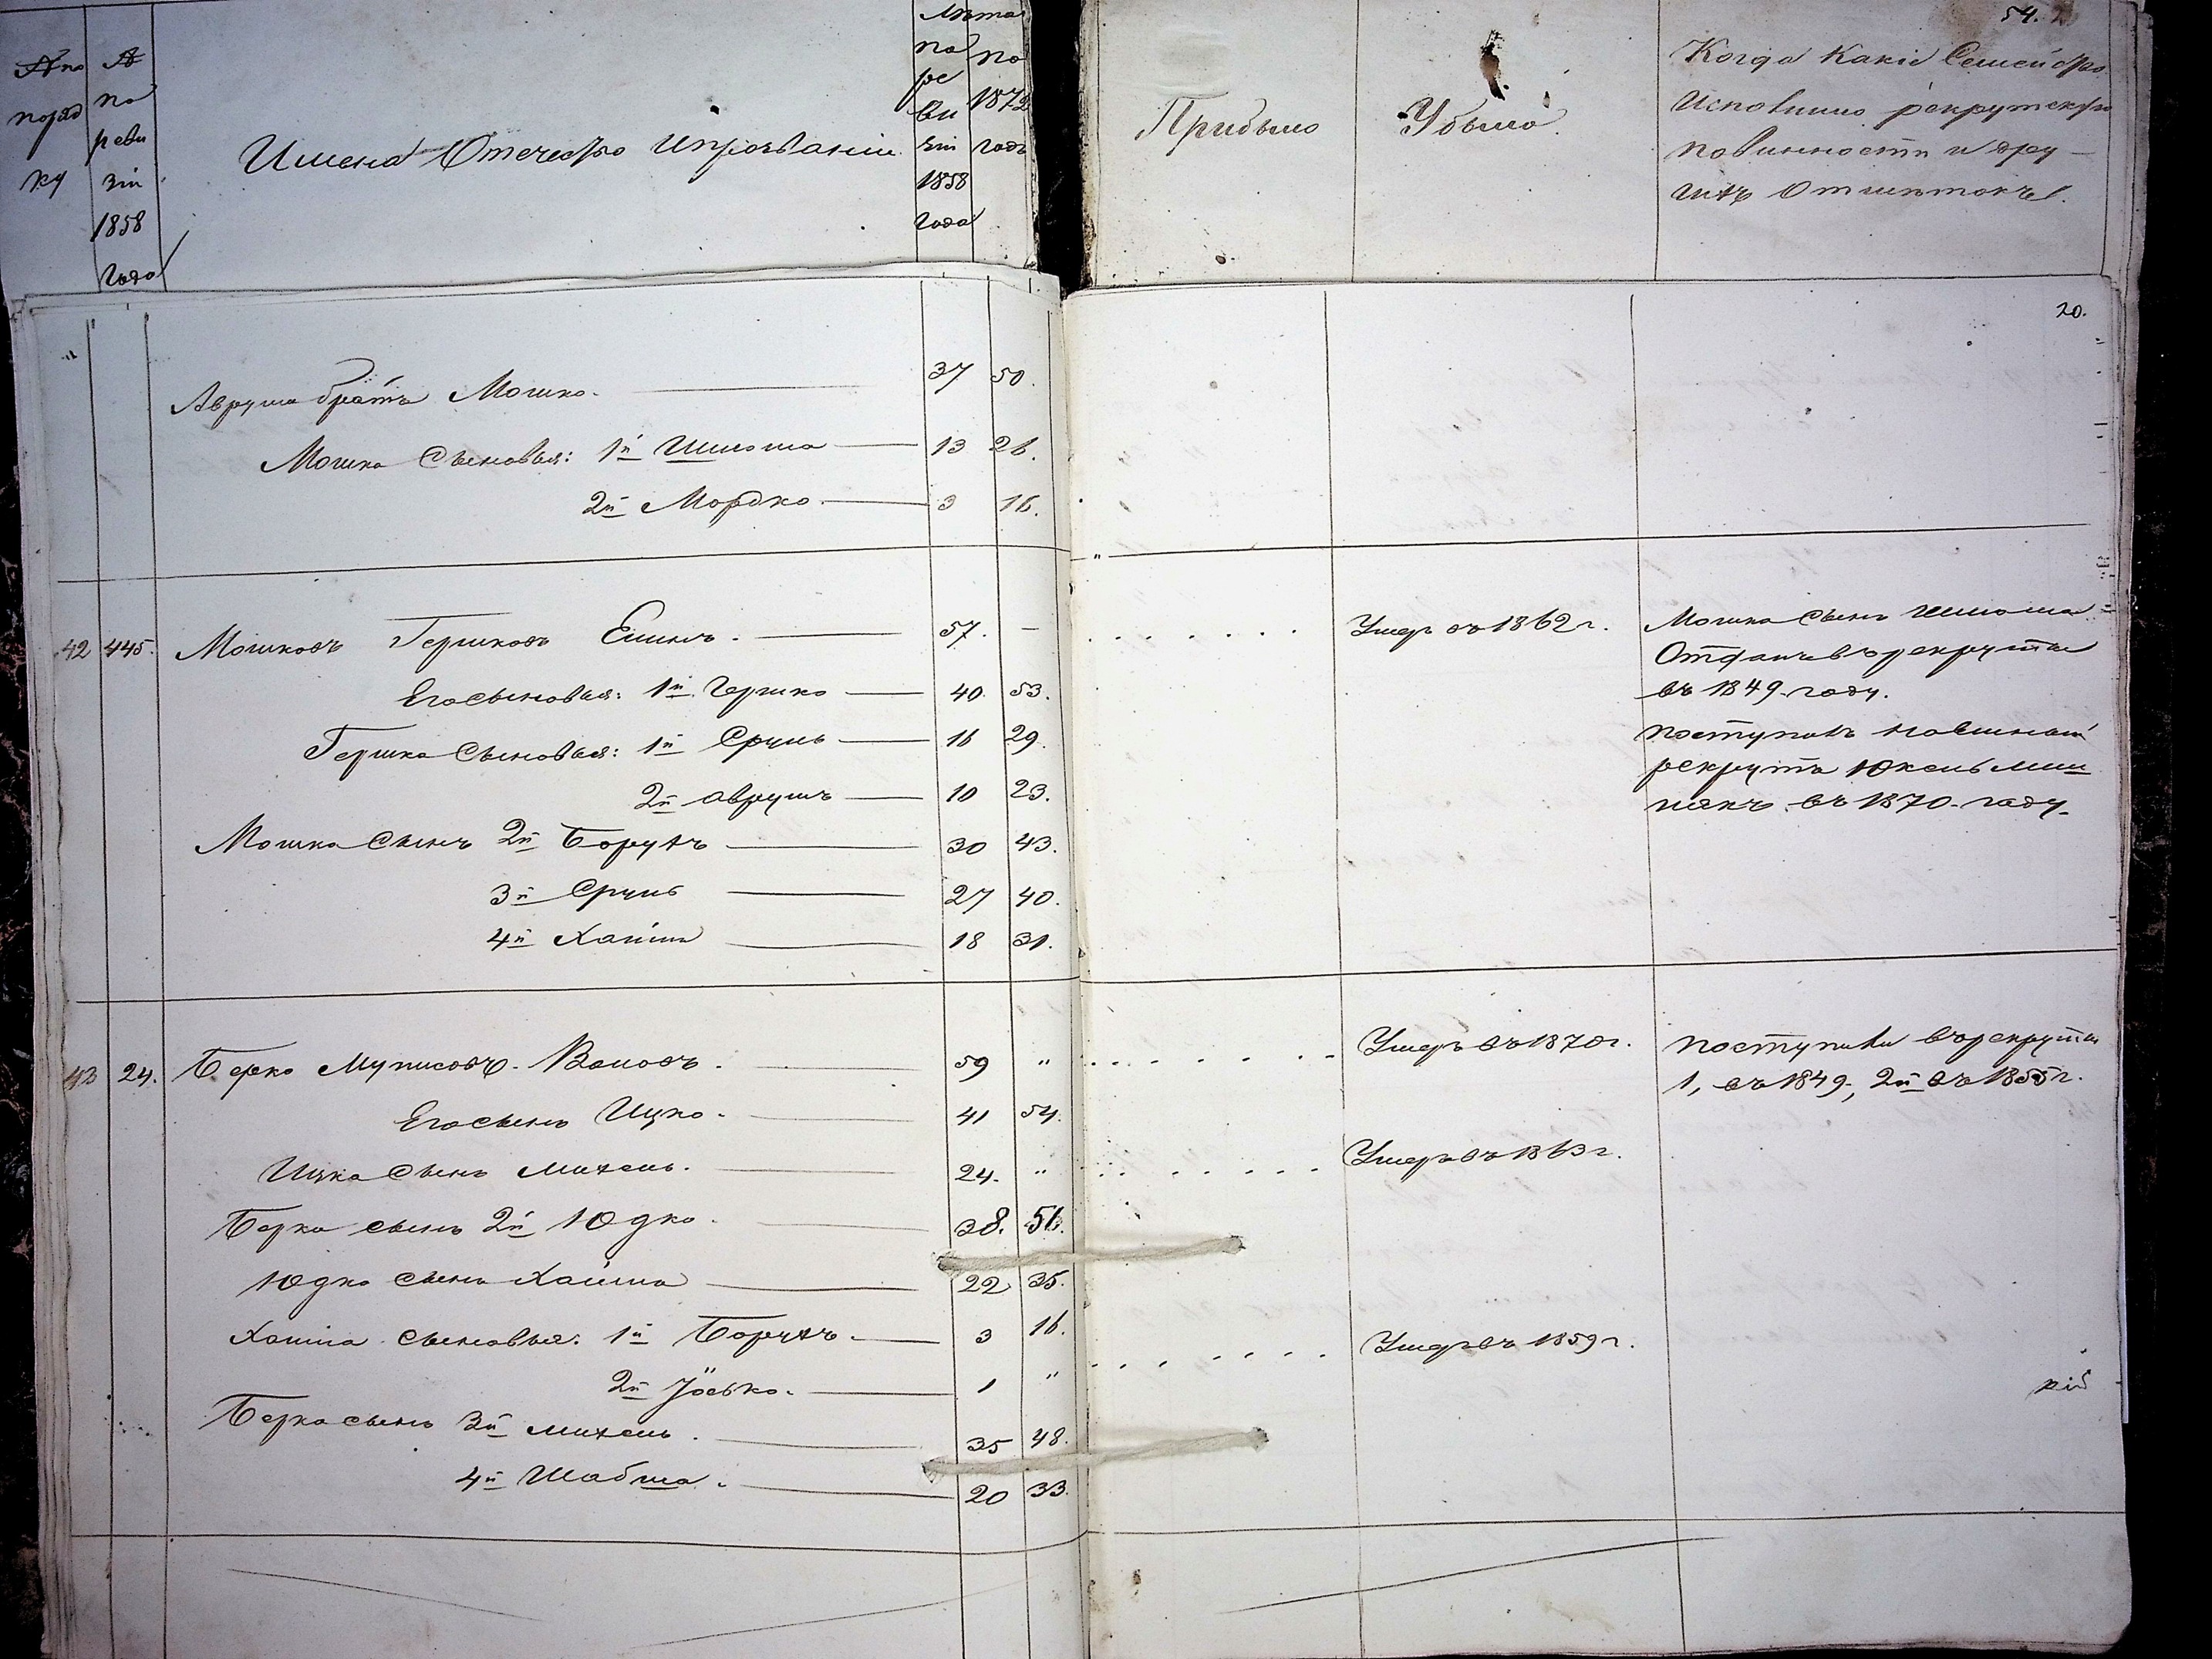 № по поряд ку
№ по реви зіи 1858 года
Имена Отечество и прозваніи
Лѣта
по ре ви зіи 1858 года
по 1872 годъ
54.
Прибыло
Убыло.
Когда какіе Семейство
исполнило рекрутскую
повинности и дру-
гихъ Отмѣтокъ.
20.
Аврума братъ Мошко. 37 50.
Мошка Сыновья: 1й Шлиома 13 26.
2й Мордко. 3 16.
42 445. Мошковъ Гершковъ 57. — Умеръ въ 1862 г.
Его сыновья: 1й Гершко 40. 53.
Гершка Сыновья: 1й Сруль 16 29.
2й Аврумъ 10 23.
Мошка Сынъ 2й Борухъ 30 43.
3й Сруль 27 40.
4й Хаимъ 18 31.
Мошка Сынъ
Отданъ въ рекруты
въ 1849 году.
поступилъ
рекрута
въ 1870 году.
43 24. Берко 59 " Умеръ въ 1870 г.
Его сынъ Ицко. 41 54.
Ицка Сынъ Михель. 24. " Умеръ въ 1863 г.
Берка сынъ 2й Юдко. 38. 51.
Юдко сынъ Хаима 22 35.
Хаима сыновья: 1й Борухъ. 3 16.
2й Іосько. 1 " Умеръ въ 1859 г.
Берка сынъ 3й Михель. 35 48.
4й Шабша. 20 33.
поступили въ рекруты
1, въ 1849, 2й въ 1855 г.